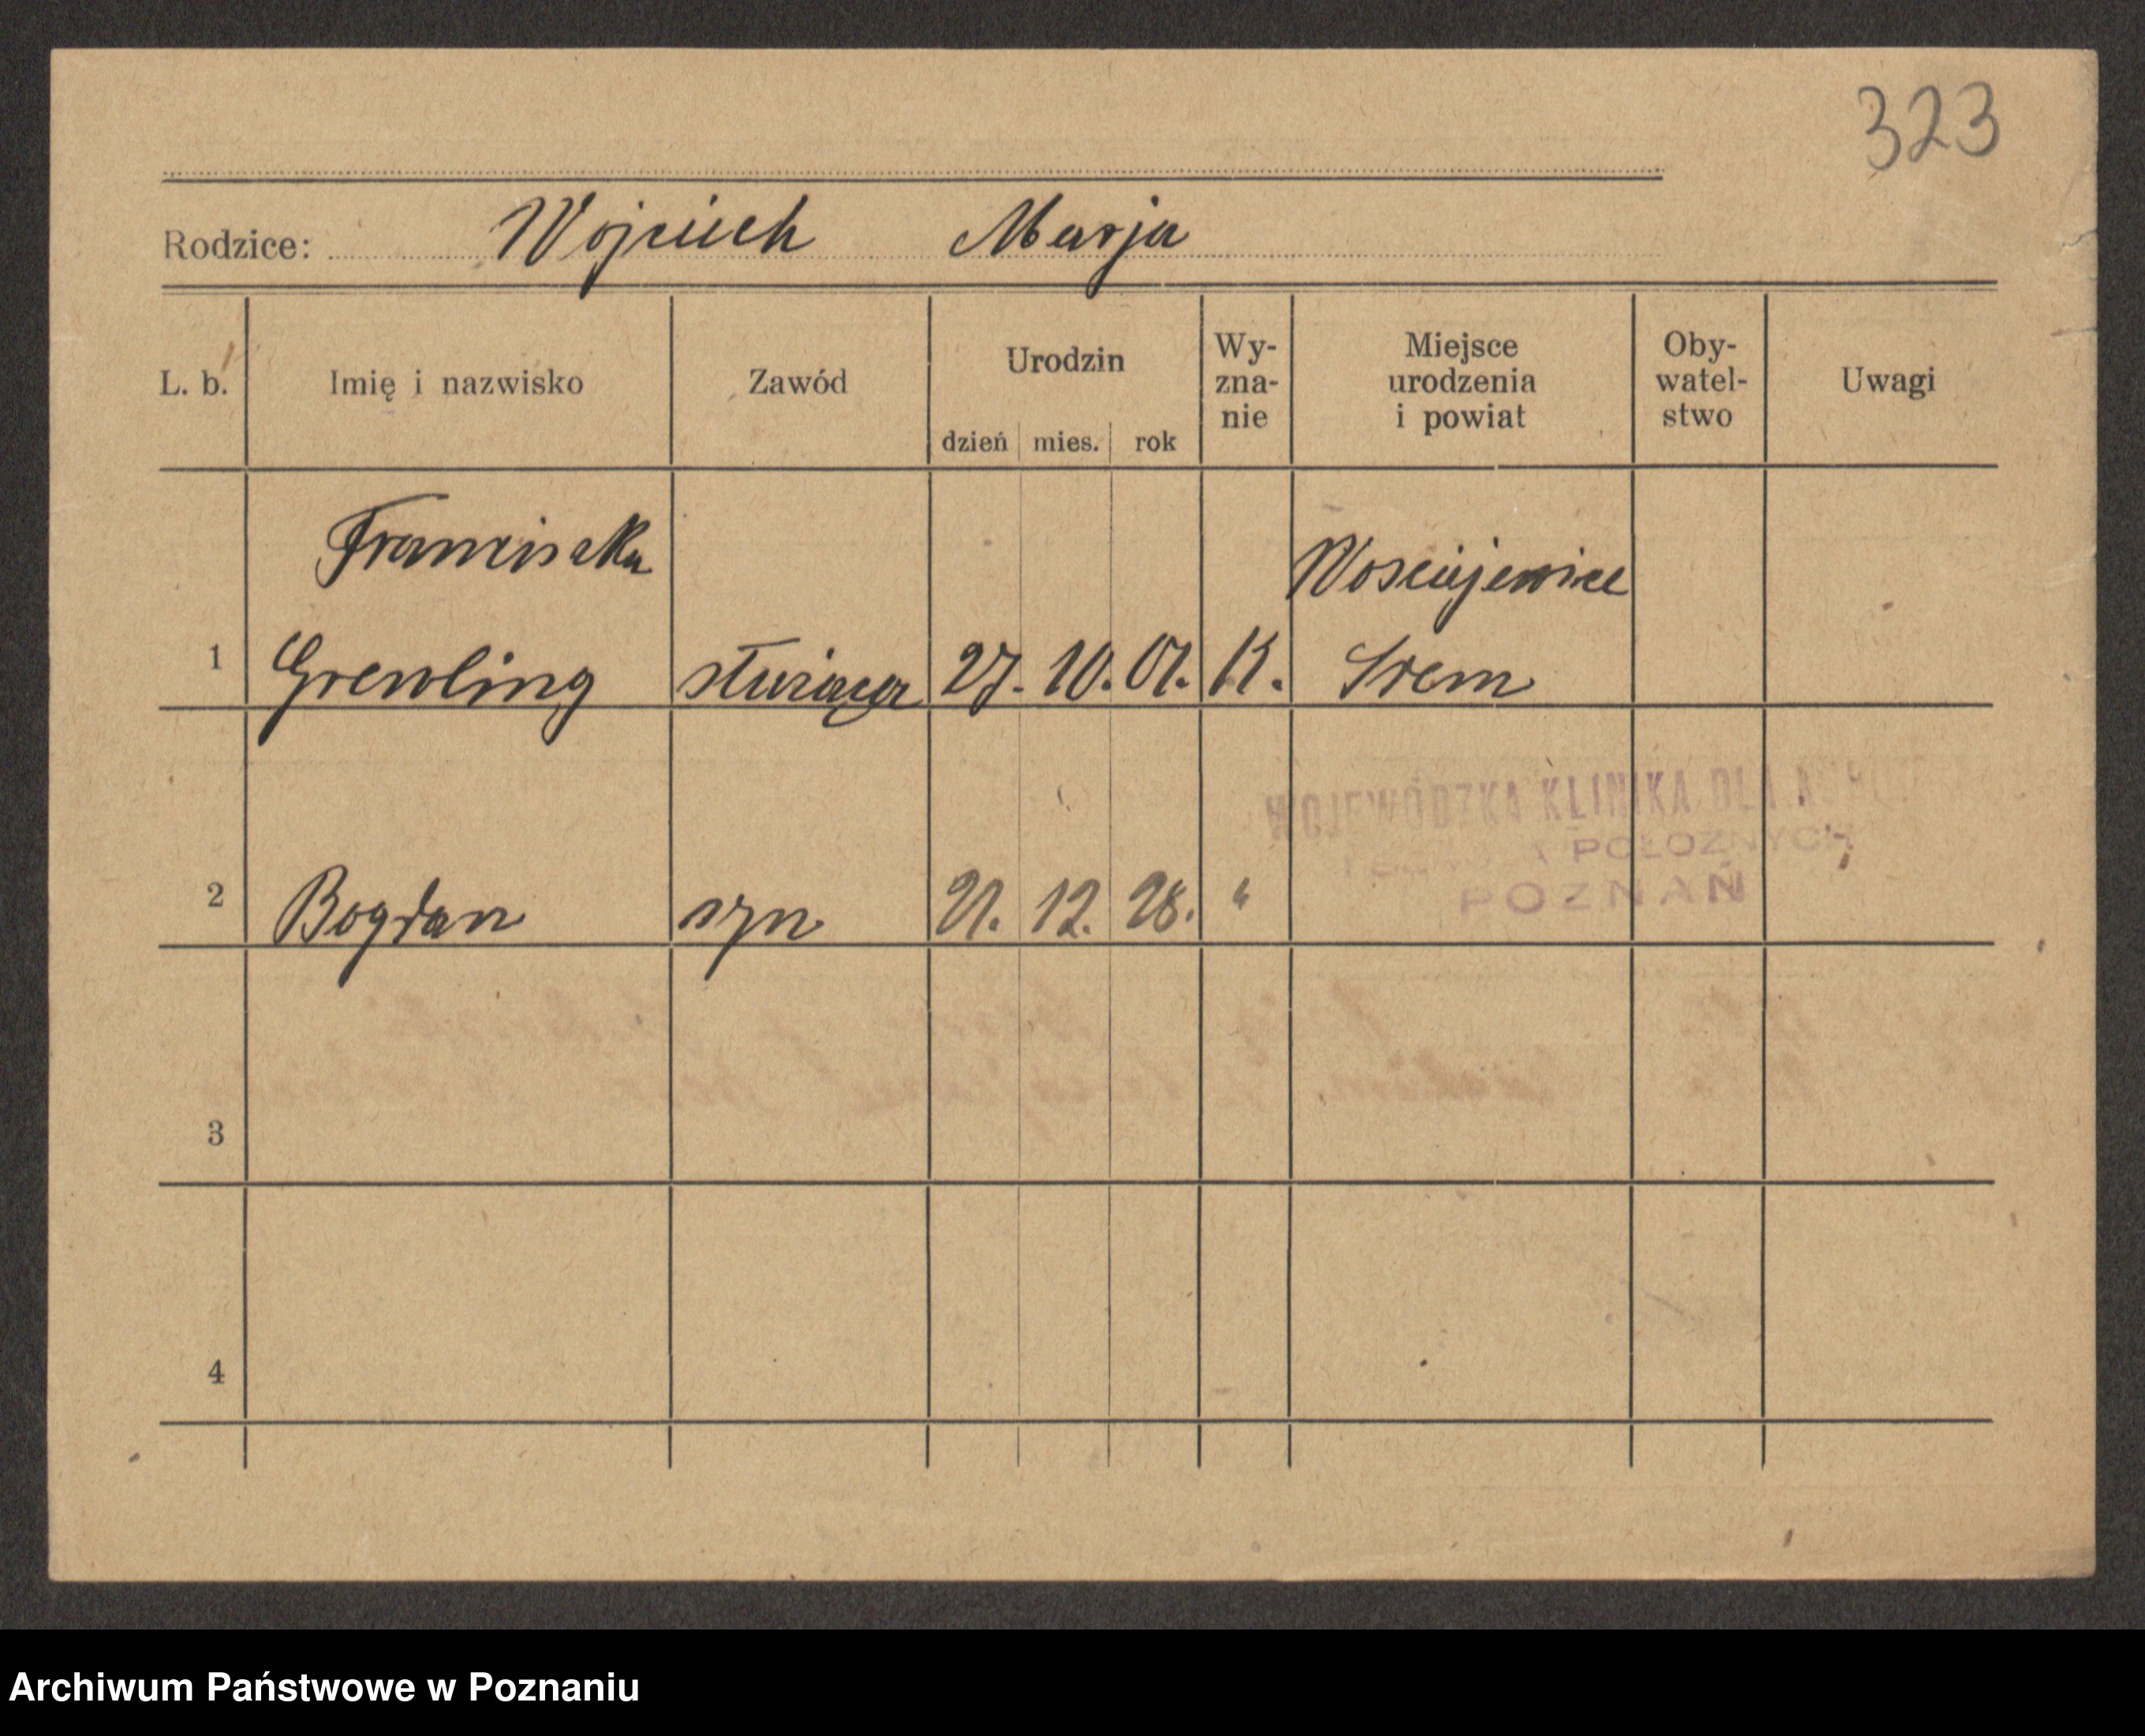 323
Rodzice: Wojciech Marja
L. b. Imię i nazwisko Zawód Urodzin Wy-zna-nie Miejsce urodzenia i powiat Oby-watel-stwo Uwagi
dzień mies. rok
Franciszka Wosciejewice
1 Grewling służąca 27. 10. 01. K. Srem
WOJEWÓDZKA KLINIKA DLA
POŁOŻNYCH
POZNAŃ
2 Bogdan syn 21. 12. 28. "
3
4
Archiwum Państwowe w Poznaniu